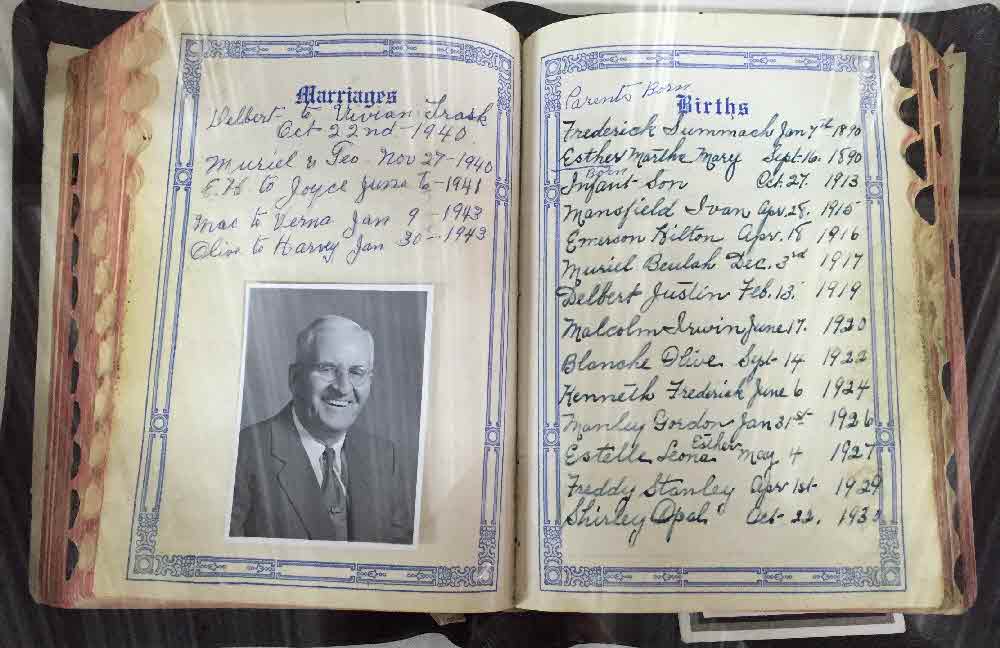 Marriages
Delbert to Vivian Trask
Oct 22nd - 1940
Muriel & Geo - Nov 27 - 1940
E.H. to Joyce June 6 - 1941
Mac to Verna Jan 9 - 1943
Olive to Harvey Jan 30 - 1943
Parents Born
Births
Frederick Summach Jan 7th 1890
Esther Martha Mary Sept. 16. 1890
Born
Infant Son Oct. 27. 1913
Mansfield Ivan Apr. 28. 1915
Emerson Hilton Apr. 18 1916
Muriel Beulah Dec. 3rd 1917
Delbert Justin Feb. 13. 1919
Malcolm Irwin June 17. 1920
Blanche Olive Sept. 14 1922
Kenneth Frederick June 6 1924
Manley Gordon Jan 31st 1926
Estelle Leona Esther May 4 1927
Freddy Stanley Apr 1st 1929
Shirley Opal Oct. 22.